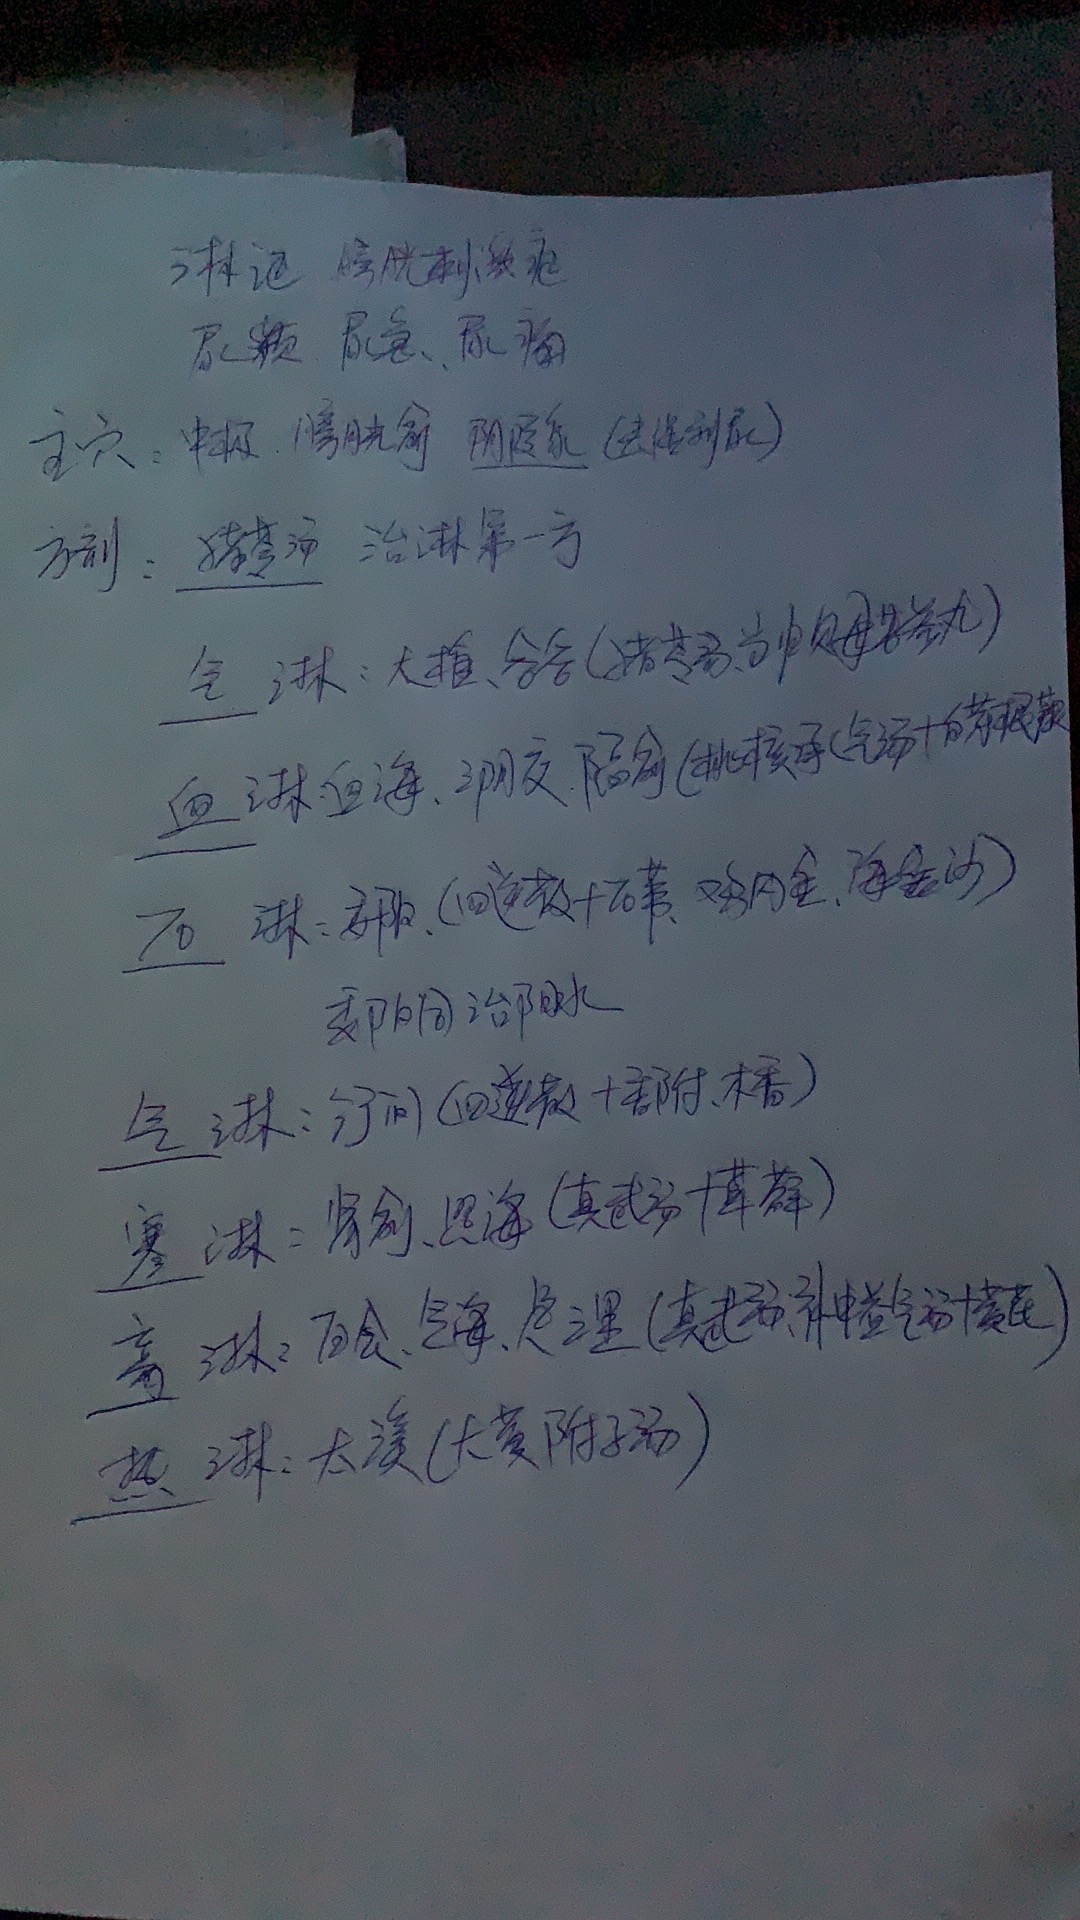 淋证 膀胱刺激症
尿频、尿急、尿痛
主穴：中极、膀胱俞 阴陵泉（去湿利尿）
方剂：猪苓汤 治淋第一方
气淋：大椎、合谷（猪苓汤、当归贝母苦参丸）
血淋：血海、三阴交、膈俞（桃核承气汤+白茅根散
石淋：委阳、（四逆散+石苇、鸡内金、海金沙）
委阳同治阳水
气淋：行间（四逆散+香附、木香）
寒淋：肾俞、照海（真武汤+萆薢）
膏淋：百会、气海、足三里（真武汤、补中益气汤+黄芪）
热淋：太溪（大黄附子汤）